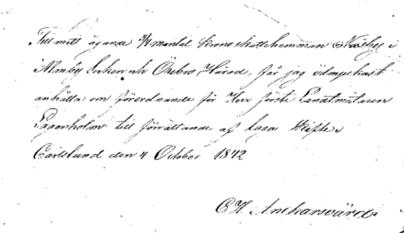 Till mitt ägande 3/4 mantal Krono skattehemman Näsby i
Almby Socken och Örebro Härad, får jag ödmjukast
anhålla om förordnande för Herr förste Landtmätaren
Fagerholm till förrättande af laga skifte.
Carlslund den 4 October 1872
C. H. Anckarsvärd